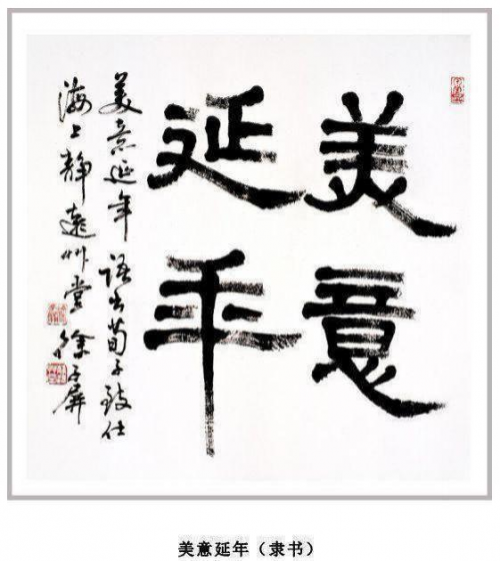 美意
延年
美意延年 语出荀子致仕
海上静远草堂徐子屏
美意延年（隶书）